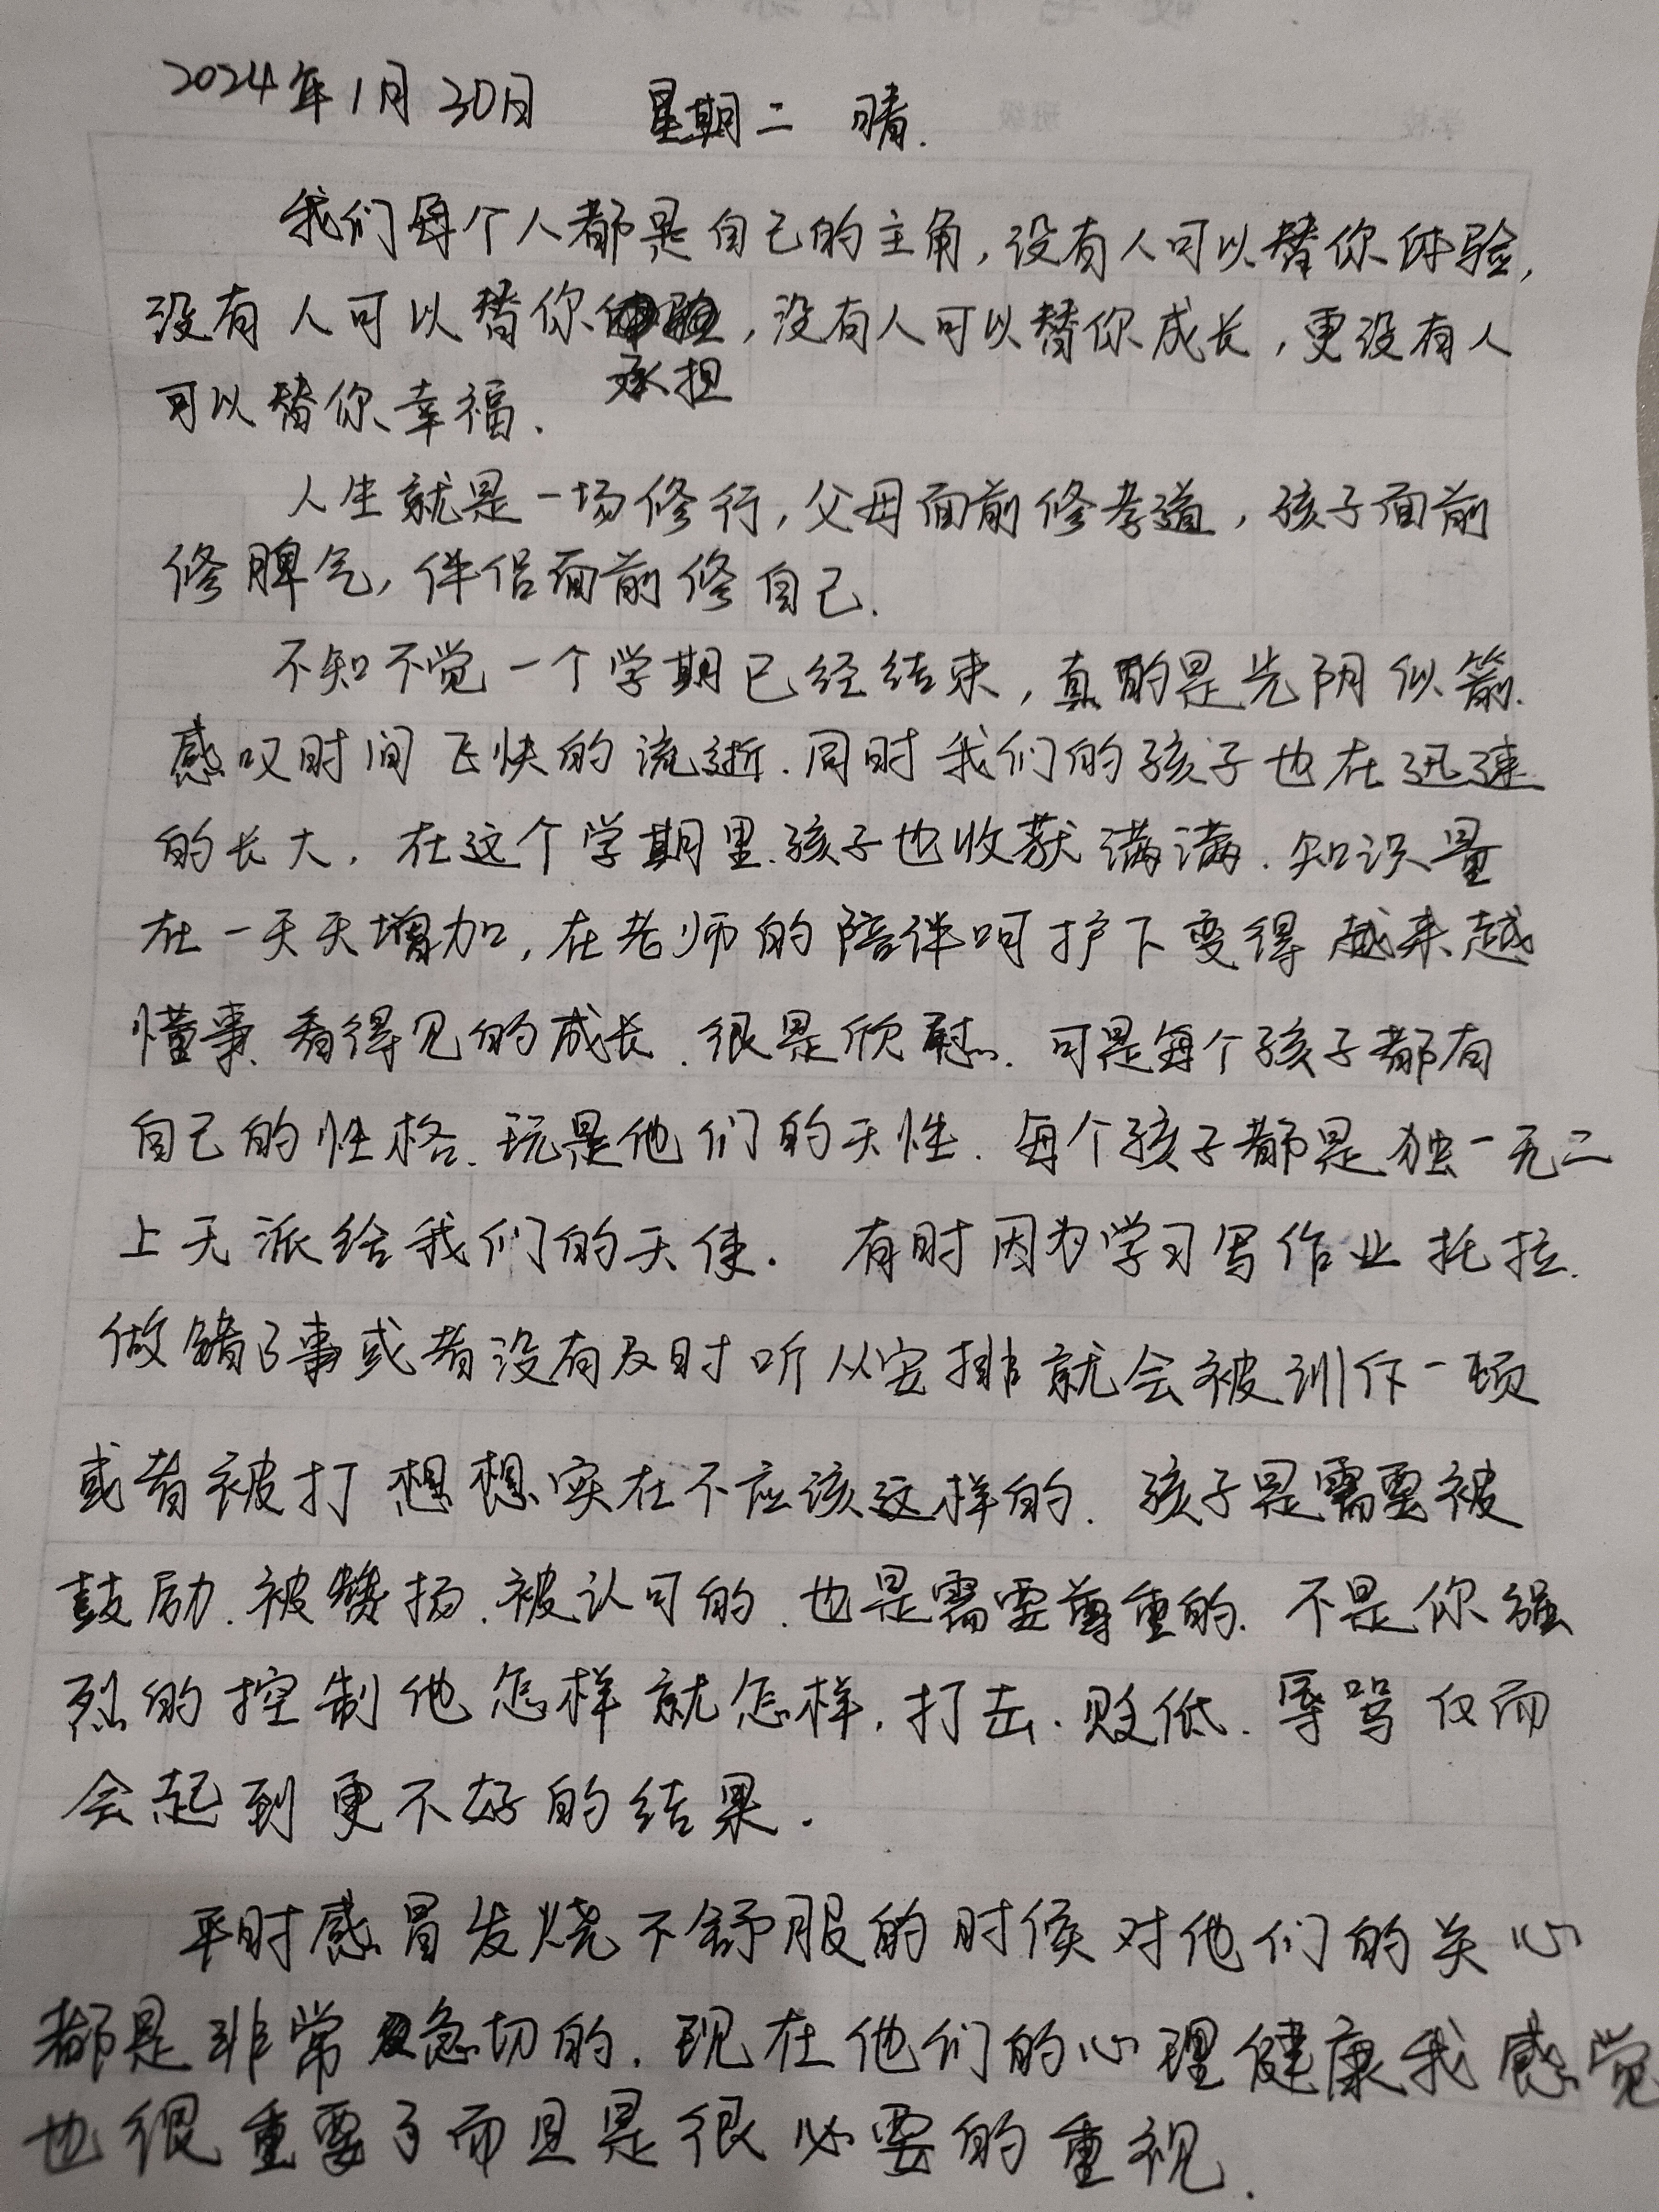 2024年1月30日 星期二 晴.
我们每个人都是自己的主角,没有人可以替你体验,
没有人可以替你承担,没有人可以替你成长,更没有人
可以替你幸福.
人生就是一场修行,父母面前修孝道,孩子面前
修脾气,伴侣面前修自己.
不知不觉一个学期已经结束,真的是光阴似箭.
感叹时间飞快的流逝.同时我们的孩子也在迅速
的长大.在这个学期里.孩子也收获满满.知识量
在一天天增加,在老师的陪伴呵护下变得越来越
懂事.看得见的成长.很是欣慰.可是每个孩子都有
自己的性格.玩是他们的天性.每个孩子都是独一无二
上天派给我们的天使.有时因为学习写作业托拉.
做错了事或者没有及时听从安排就会被训作一顿
或者被打想想实在不应该这样的.孩子是需要被
鼓励.被赞扬.被认可的.也是需要尊重的.不是你强
烈的控制他怎样就怎样.打击.败低.辱骂反而
会起到更不好的结果.
平时感冒发烧不舒服的时候对他们的关心
都是非常急切的.现在他们的心理健康我感觉
也很重要了而且是很必要的重视.